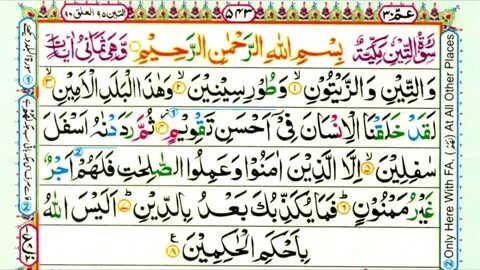 عـمّ ٣٠
٥٤٣
التين ٩٥ العلق ٩٦
سُوْرَةُ التِّيْنِ مَكِّيَّةٌ
بِسْمِ اللّٰهِ الرَّحْمٰنِ الرَّحِيْمِ
وَهِيَ ثَمَانِيْ اٰيَاتٍ
وَالتِّيْنِ وَالزَّيْتُوْنِ ۙ‏﴿۱﴾ وَطُوْرِ سِيْنِيْنَ ۙ‏﴿۲﴾ وَهٰذَا الْبَلَدِ الْاَمِيْنِ ۙ‏﴿۳﴾
لَقَدْ خَلَقْنَا الْاِنْسَانَ فِىْۤ اَحْسَنِ تَقْوِيْمٍ ‏﴿۴﴾ ثُمَّ رَدَدْنٰهُ اَسْفَلَ
سٰفِلِيْنَ ۙ‏﴿۵﴾ اِلَّا الَّذِيْنَ اٰمَنُوْا وَعَمِلُوا الصّٰلِحٰتِ فَلَهُمْ اَجْرٌ
غَيْرُ مَمْنُوْنٍ ؕ‏﴿۶﴾ فَمَا يُكَذِّبُكَ بَعْدُ بِالدِّيْنِ ؕ‏﴿۷﴾ اَلَيْسَ اللّٰهُ
بِاَحْكَمِ الْحٰكِمِيْنَ ‏﴿۸﴾ ع
② Only Here With FA, (فَلَهُمْ) At All Other Places